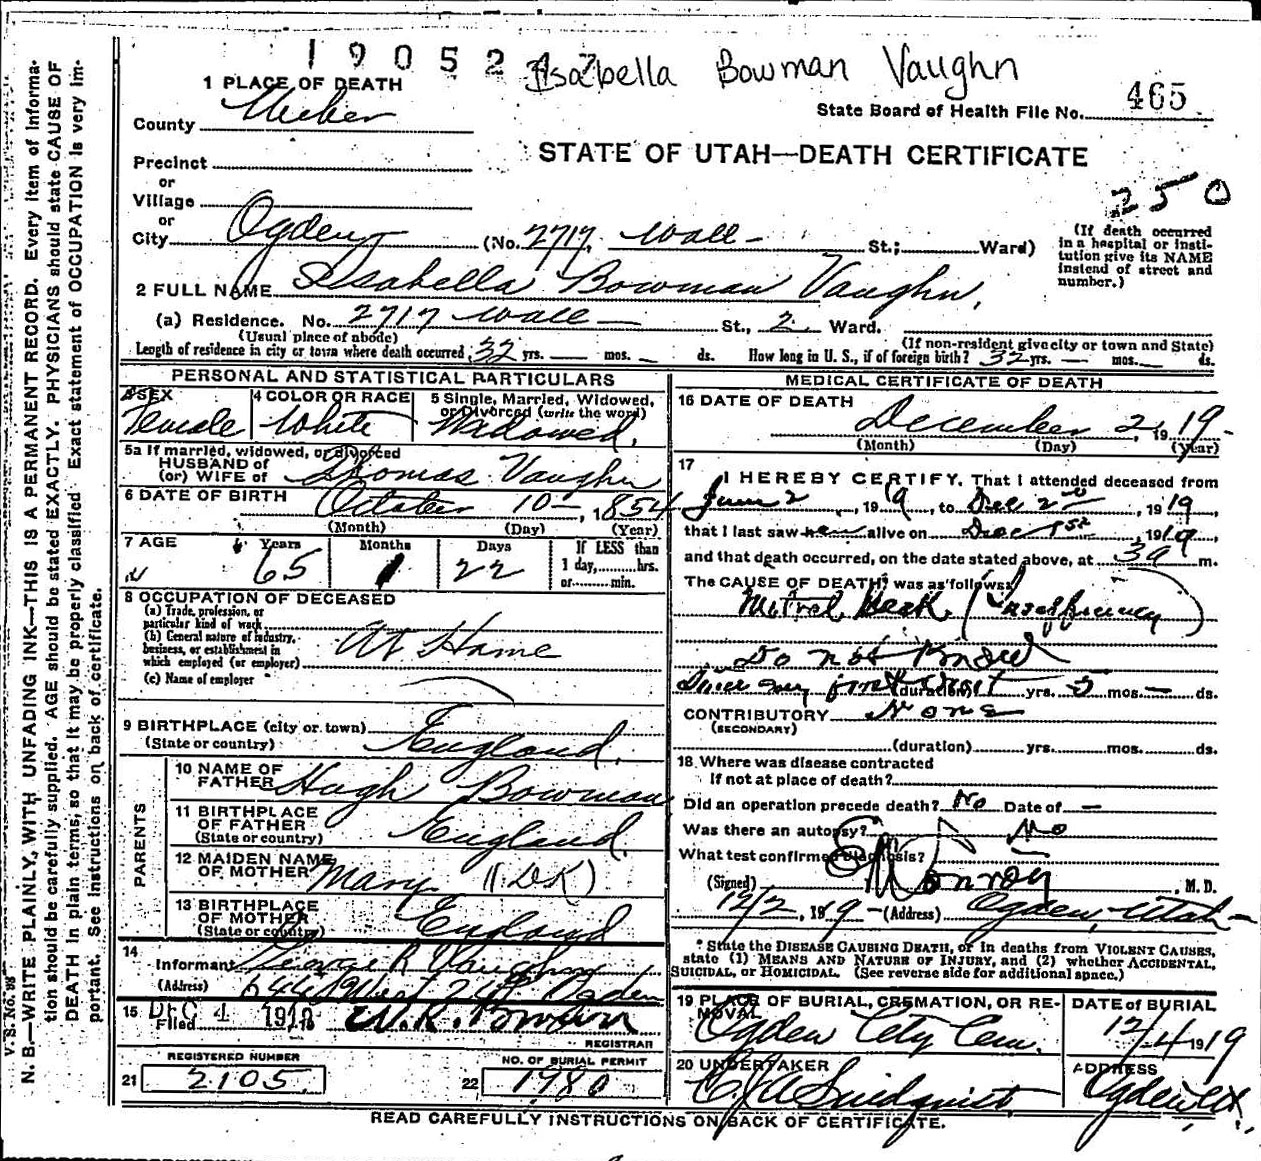 19052 Isabella Bowman Vaughn
1 PLACE OF DEATH
State Board of Health File No. 465
County Weber
STATE OF UTAH—DEATH CERTIFICATE
Precinct
or
Village
250
or
City Ogden (No. 2717, Wall - St.; Ward)
(If death occurred in a hospital or insti-
tution give its NAME instead of street and number.)
2 FULL NAME Isabella Bowman Vaughn,
(a) Residence. No. 2717 Wall — St., 2 Ward.
(Usual place of abode) (If non-resident give city or town and State)
Length of residence in city or town where death occurred 32 yrs. — mos. — ds. How long in U. S., if of foreign birth? 32 yrs. — mos. — ds.
PERSONAL AND STATISTICAL PARTICULARS
3 SEX Female
4 COLOR OR RACE White
5 Single, Married, Widowed, or Divorced (write the word) Widowed.
5a If married, widowed, or divorced
HUSBAND of
(or) WIFE of Thomas Vaughn
6 DATE OF BIRTH October 10 —, 1854
(Month) (Day) (Year)
7 AGE Years 65 Months 1 Days 22
If LESS than 1 day, hrs. or min.
8 OCCUPATION OF DECEASED
(a) Trade, profession, or particular kind of work
(b) General nature of industry, business, or establishment in which employed (or employer) At Home
(c) Name of employer
9 BIRTHPLACE (city or town)
(State or country) England.
PARENTS
10 NAME OF FATHER Hugh Bowman
11 BIRTHPLACE OF FATHER
(State or country) England.
12 MAIDEN NAME OF MOTHER Mary (DK)
13 BIRTHPLACE OF MOTHER
(State or country) England
14 Informant George R Vaughn
(Address) West 24th Ogden
15 Filed DEC 4 1919 W. R. Brown
REGISTRAR
REGISTERED NUMBER
21 2105
NO. OF BURIAL PERMIT
22 1980
MEDICAL CERTIFICATE OF DEATH
16 DATE OF DEATH December 2, 1919-
(Month) (Day) (Year)
17 I HEREBY CERTIFY, That I attended deceased from
June 2, 1919, to Dec 2nd, 1919,
that I last saw her alive on Dec 1st, 1919,
and that death occurred, on the date stated above, at 3a m.
The CAUSE OF DEATH* was as follows:
Mitral (Insufficiency)
Do not Know
Since my first visit (duration) yrs. 5 mos. — ds.
CONTRIBUTORY None
(SECONDARY)
(duration) yrs. mos. ds.
18 Where was disease contracted
If not at place of death?
Did an operation precede death? No Date of —
Was there an autopsy? No
What test confirmed diagnosis? —
(Signed) Conroy, M. D.
12/2, 1919 - (Address) Ogden, Utah -
* State the DISEASE CAUSING DEATH, or in deaths from VIOLENT CAUSES,
state (1) MEANS AND NATURE OF INJURY, and (2) whether ACCIDENTAL,
SUICIDAL, or HOMICIDAL. (See reverse side for additional space.)
19 PLACE OF BURIAL, CREMATION, OR RE-
MOVAL Ogden City Cem.
DATE of BURIAL
12/4 1919
20 UNDERTAKER
Lindquist
ADDRESS
Ogden, Ut.
READ CAREFULLY INSTRUCTIONS ON BACK OF CERTIFICATE.
V. S. No. 95
N. B.—WRITE PLAINLY, WITH UNFADING INK—THIS IS A PERMANENT RECORD. Every item of informa-
tion should be carefully supplied. AGE should be stated EXACTLY. PHYSICIANS should state CAUSE OF
DEATH in plain terms, so that it may be properly classified. Exact statement of OCCUPATION is very im-
portant. See instructions on back of certificate.